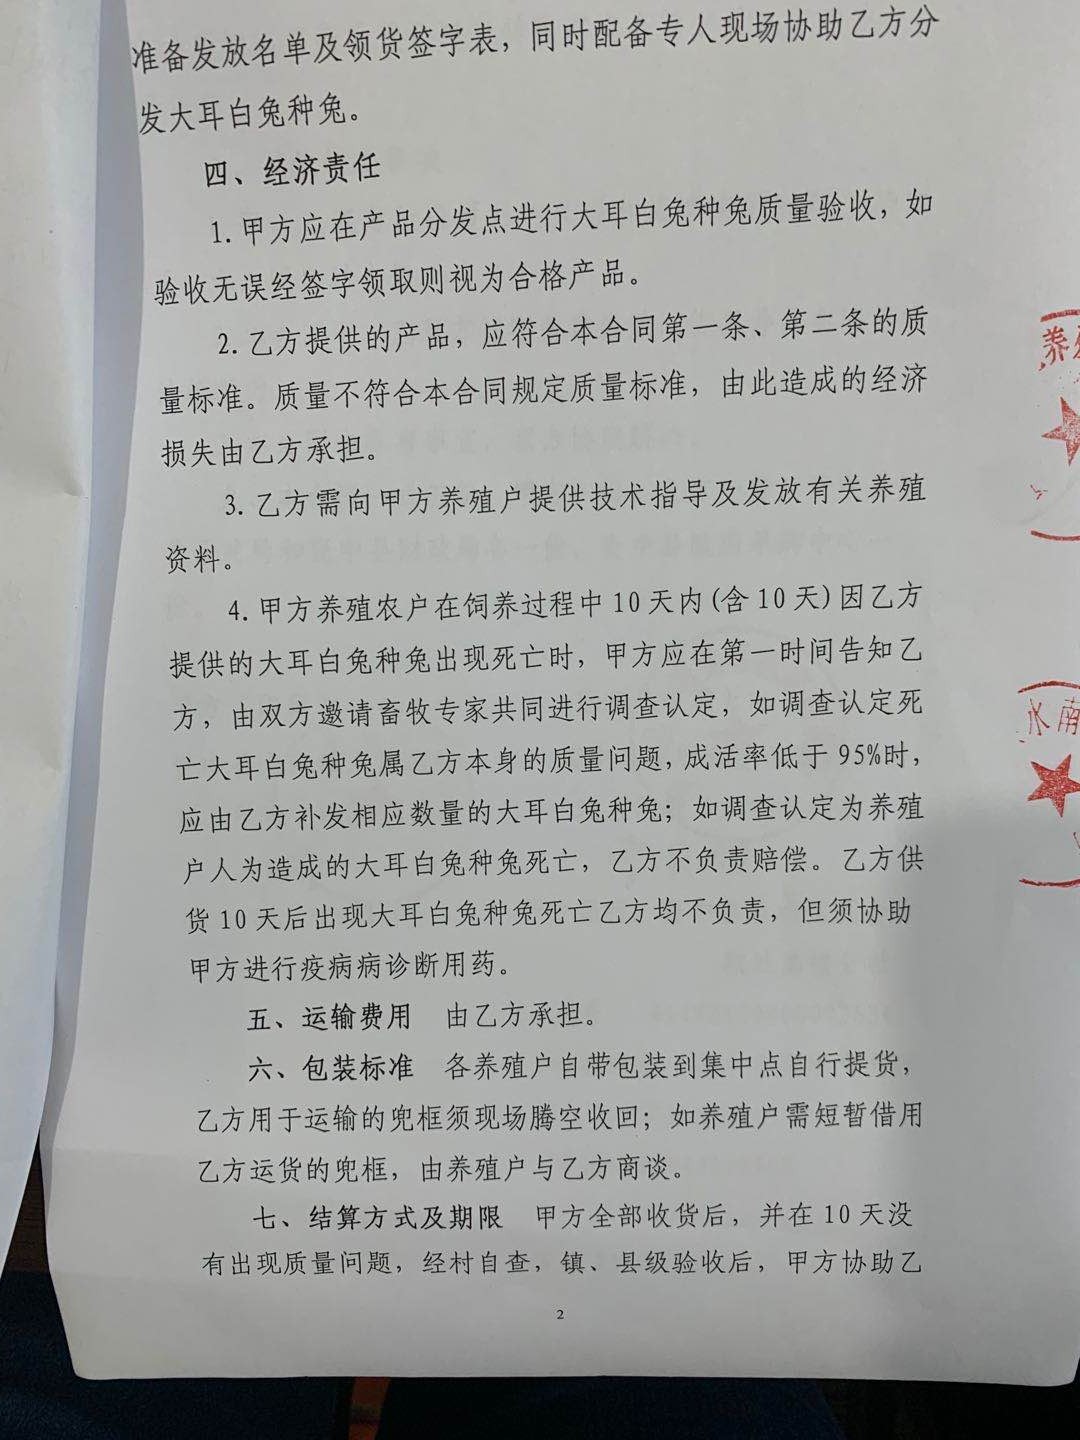 准备发放名单及领货签字表，同时配备专人现场协助乙方分
发大耳白兔种兔。
四、经济责任
1.甲方应在产品分发点进行大耳白兔种兔质量验收，如
验收无误经签字领取则视为合格产品。
2.乙方提供的产品，应符合本合同第一条、第二条的质
量标准。质量不符合本合同规定质量标准，由此造成的经济
损失由乙方承担。
3.乙方需向甲方养殖户提供技术指导及发放有关养殖
资料。
4.甲方养殖农户在饲养过程中10天内(含10天)因乙方
提供的大耳白兔种兔出现死亡时，甲方应在第一时间告知乙
方，由双方邀请畜牧专家共同进行调查认定，如调查认定死
亡大耳白兔种兔属乙方本身的质量问题，成活率低于95%时，
应由乙方补发相应数量的大耳白兔种兔；如调查认定为养殖
户人为造成的大耳白兔种兔死亡，乙方不负责赔偿。乙方供
货10天后出现大耳白兔种兔死亡乙方均不负责，但须协助
甲方进行疫病病诊断用药。
五、运输费用 由乙方承担。
六、包装标准 各养殖户自带包装到集中点自行提货，
乙方用于运输的兜框须现场腾空收回；如养殖户需短暂借用
乙方运货的兜框，由养殖户与乙方商谈。
七、结算方式及期限 甲方全部收货后，并在10天没
有出现质量问题，经村自查，镇、县级验收后，甲方协助乙
2
养
水南